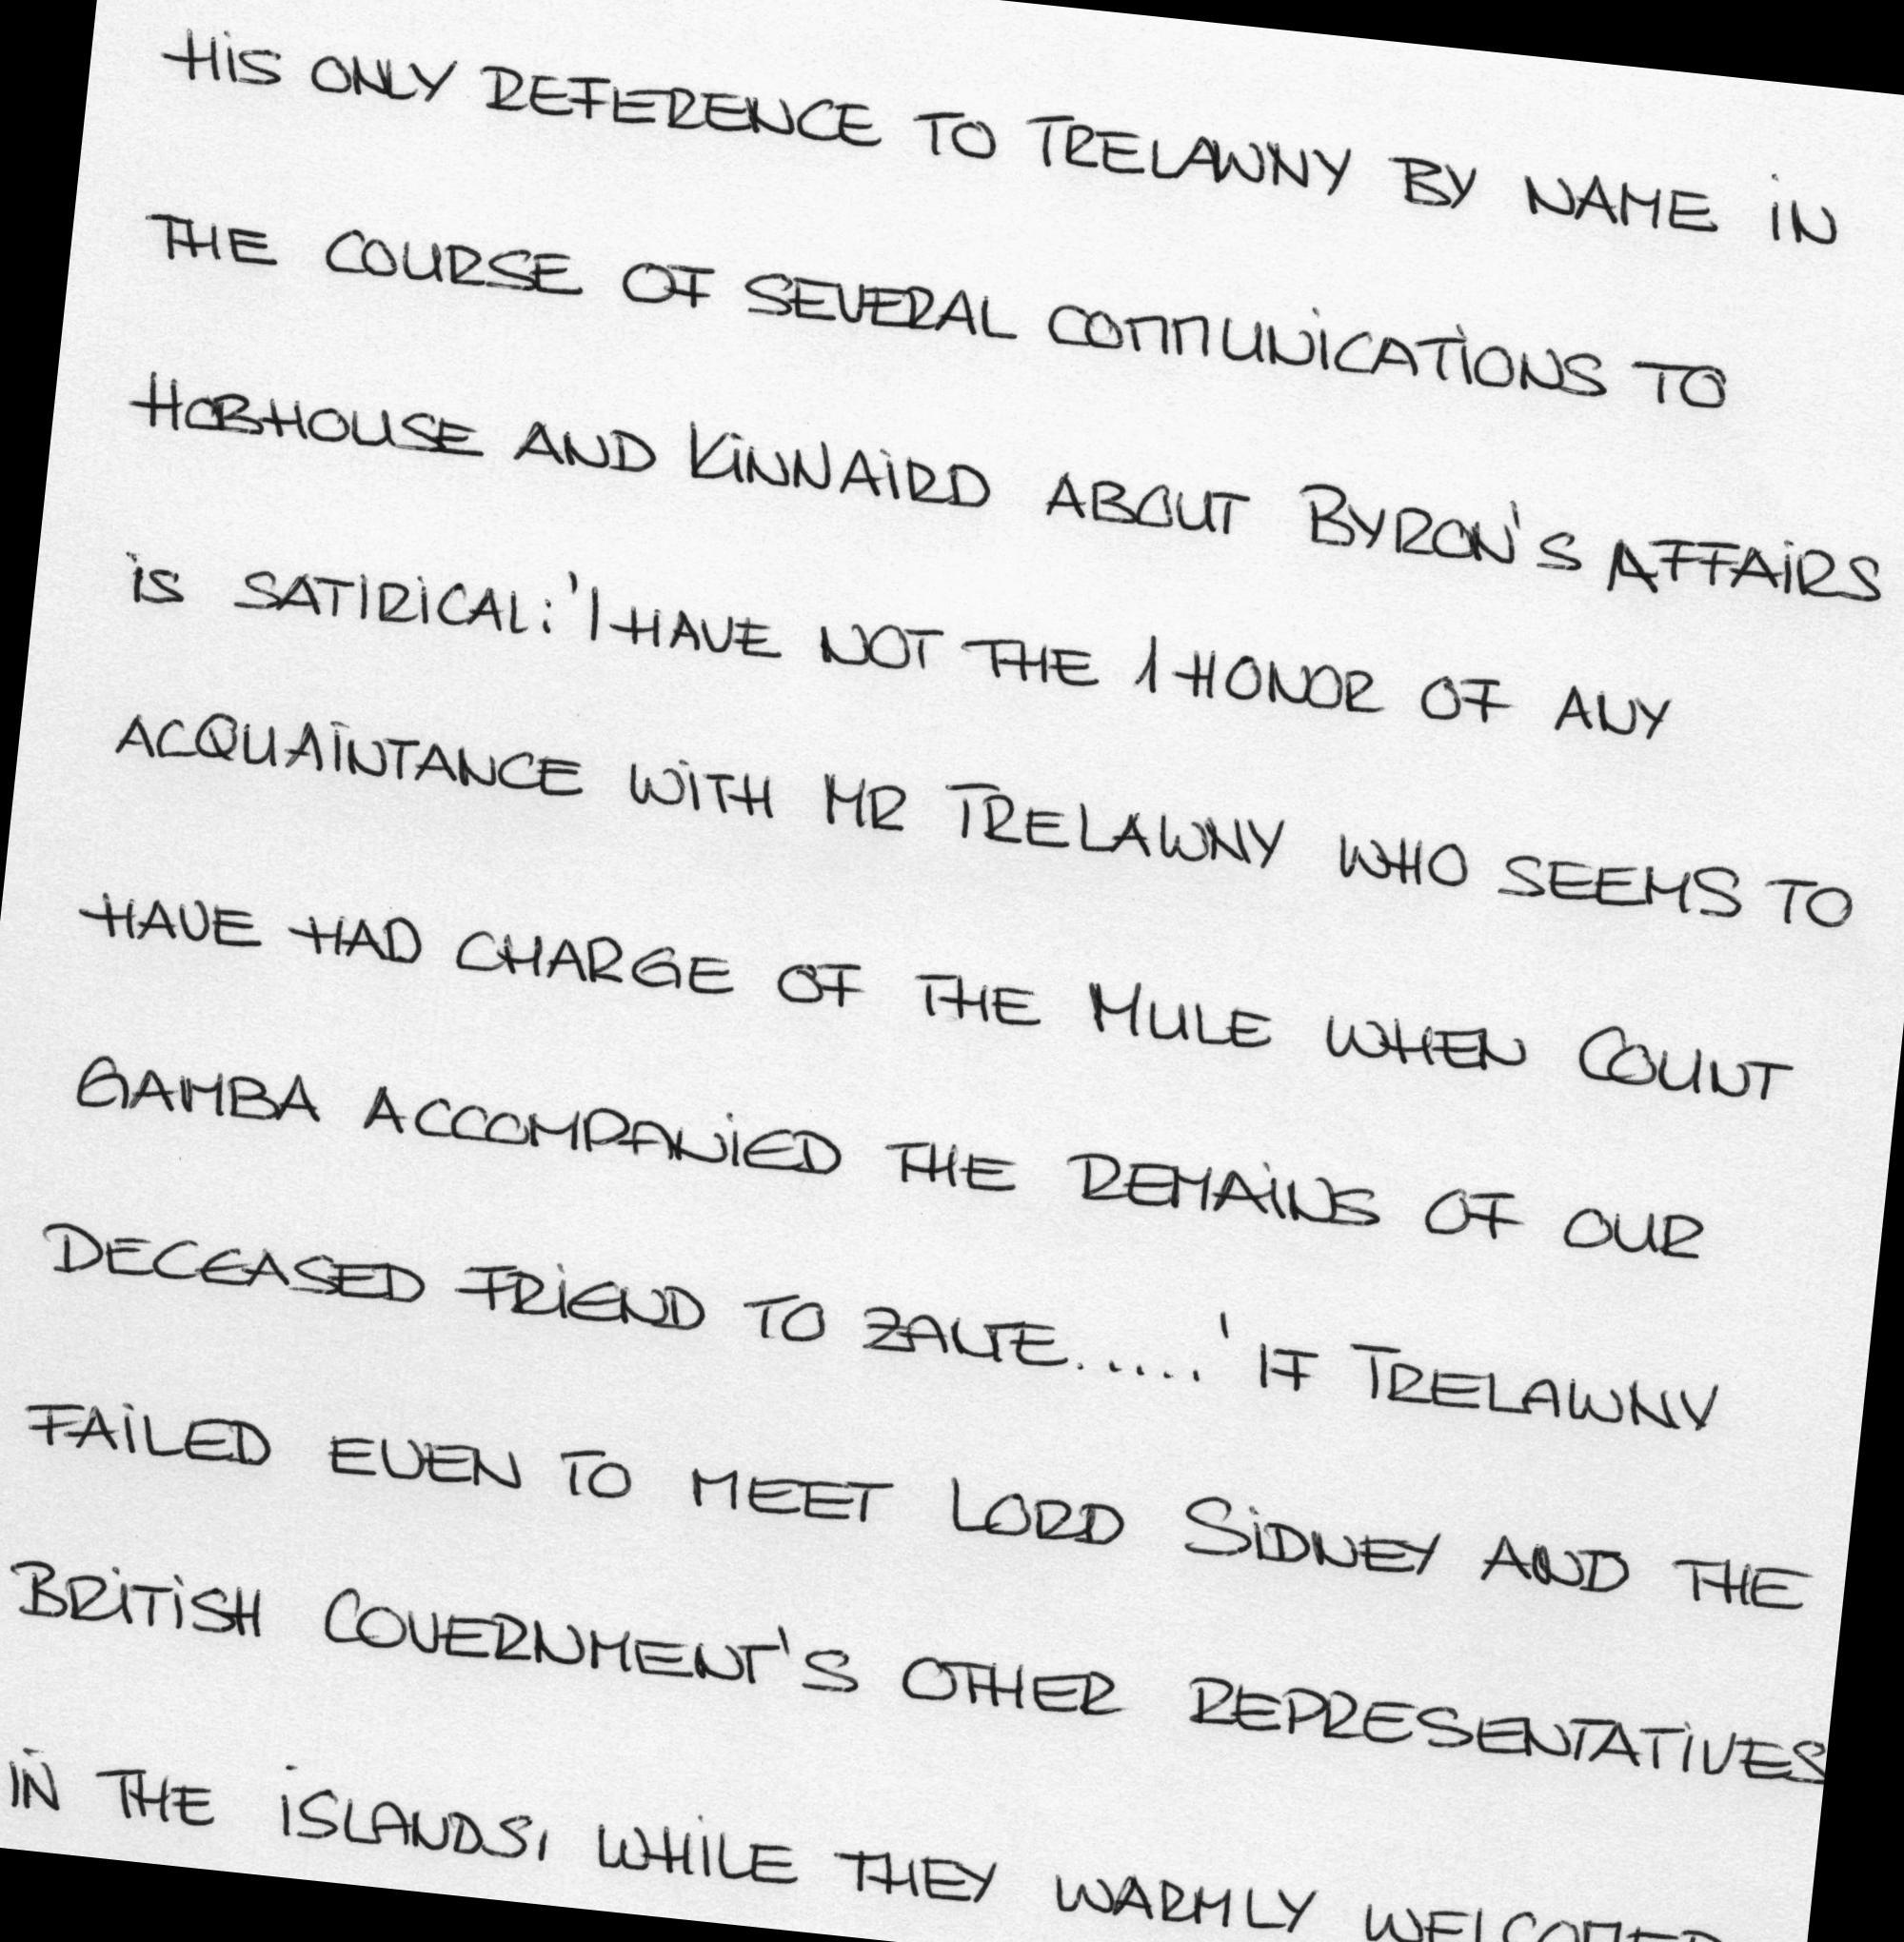 HIS ONLY REFERENCE TO TRELAWNY BY NAME IN
THE COURSE OF SEVERAL COMMUNICATIONS TO
HOBHOUSE AND KINNAIRD ABOUT BYRON'S AFFAIRS
IS SATIRICAL: 'I HAVE NOT THE 1 HONOR OF ANY
ACQUAINTANCE WITH MR TRELAWNY WHO SEEMS TO
HAVE HAD CHARGE OF THE MULE WHEN COUNT
GAMBA ACCOMPANIED THE REMAINS OF OUR
DECEASED FRIEND TO ZANTE.....' IF TRELAWNY
FAILED EVEN TO MEET LORD SIDNEY AND THE
BRITISH GOVERNMENT'S OTHER REPRESENTATIVES
IN THE ISLANDS, WHILE THEY WARMLY WELCOMED